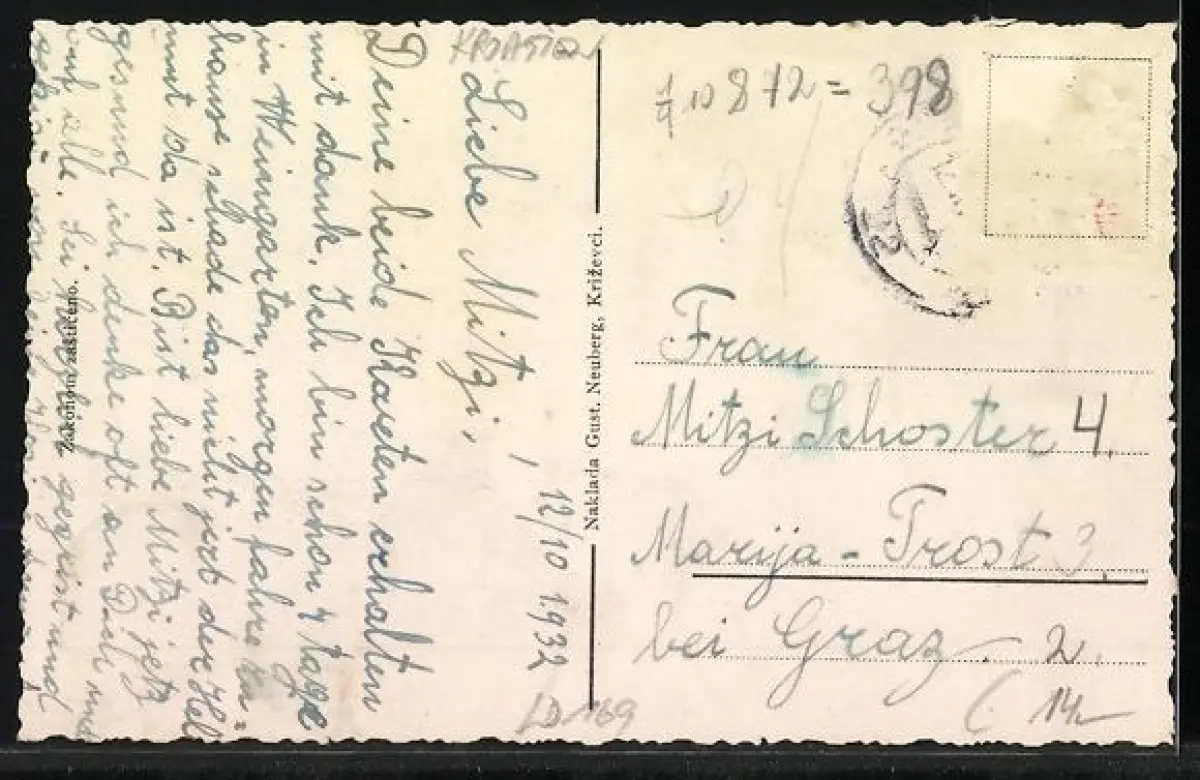 KROATIEN
12/10 1932
Liebe Mitzi,
Deine beide Kharten erhalten
mit dank. Ich bin schon 4 tage
in Weingarten, morgen fahre zu
hause schade das nicht jezt der Hel
mut da ist. Bist liebe Mitzi jetz
gesund ich denke oft an Dich und
auf alle. Sei herzlich gegrüst und
LD169
Zakonom zaštićeno.
Naklada Gust. Neuberg, Križevci.
10 872 = 398
Frau
Mitzi Schoster 4.
Marija - Trost 3.
bei Graz. 2.
14